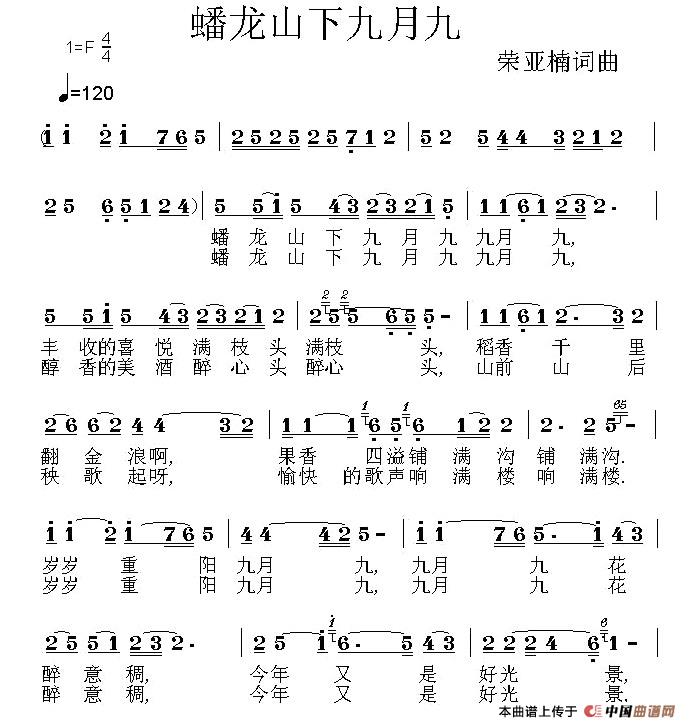 蟠龙山下九月九
1=F 4/4
荣亚楠词曲
♩=120
(1̇ 1̇ 2̇ 1̇ 7 6 5 | 2 5 2 5 2 5 7 1 2 | 5 2 5 4 4 3 2 1 2 |
2 5 6 5 1 2 4) | 5 5 1̇ 5 4 3 2 3 2 1 5 | 1 1 6 1 2 3 2 - |
蟠 龙 山 下 九 月 九 九月 九,
蟠 龙 山 下 九 月 九 九月 九,
5 5 1̇ 5 4 3 2 3 2 1 2 | 2 5 5 6 5 5 - | 1 1 6 1 2 . 3 |
丰 收的喜 悦 满 枝 头 满枝 头, 稻香 千 里
醇 香的美 酒 醉 心 头 醉心 头, 山前 山 后
2 6 6 2 4 4 3 2 | 1 1 1 6 5 6 1 2 1 | 2 . 2 5 - |
翻 金 浪啊, 果香 四溢铺 满 沟 铺 满 沟.
秧 歌 起呀, 愉快 的歌声响 满 楼 响 满 楼.
1̇ 1̇ 2̇ 1̇ 7 6 5 | 4 4 4 2 5 - | 4 4 5 - 1̇ 4 3 |
岁岁 重 阳 九月 九, 九月 九 花
岁岁 重 阳 九月 九, 九月 九 花
2 5 5 1 2 3 2 . | 2 5 1̇ 6 . 5 4 3 | 2 2 2 4 6 5 - |
醉 意 稠, 今年 又 是 好光 景,
醉 意 稠, 今年 又 是 好光 景,
本曲谱上传于 中国曲谱网